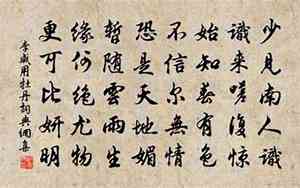 少見南人識
識來嗟復驚
始知春有色
不信尔無情
恐是天地媚
暫隨雲雨生
緣何絕尤物
更可比妍明
李咸用牡丹詞典網集